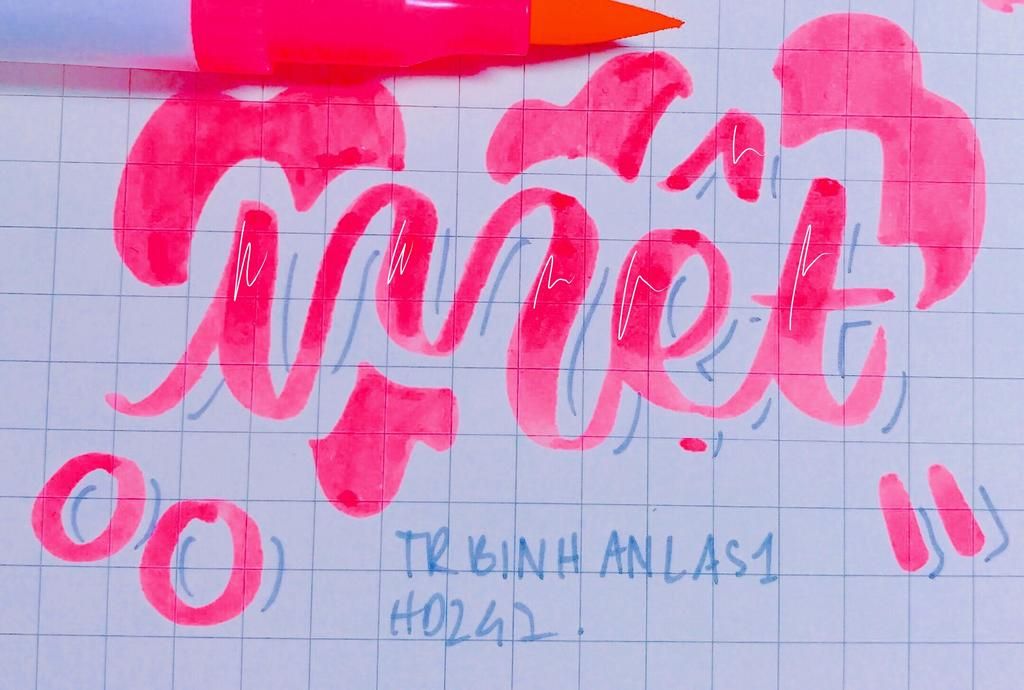 mệt
TRBINH ANLAS1
HD2G2.